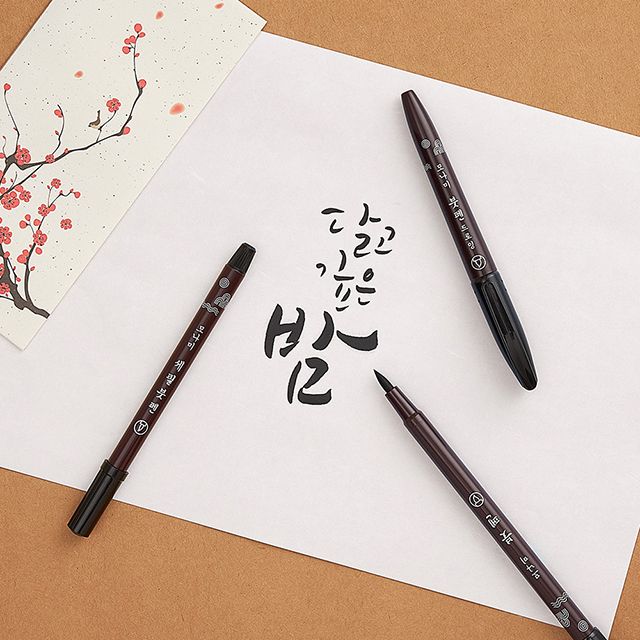 달고
깊은
밤
모나미 세필붓펜
모나미 붓펜
모나미 붓펜